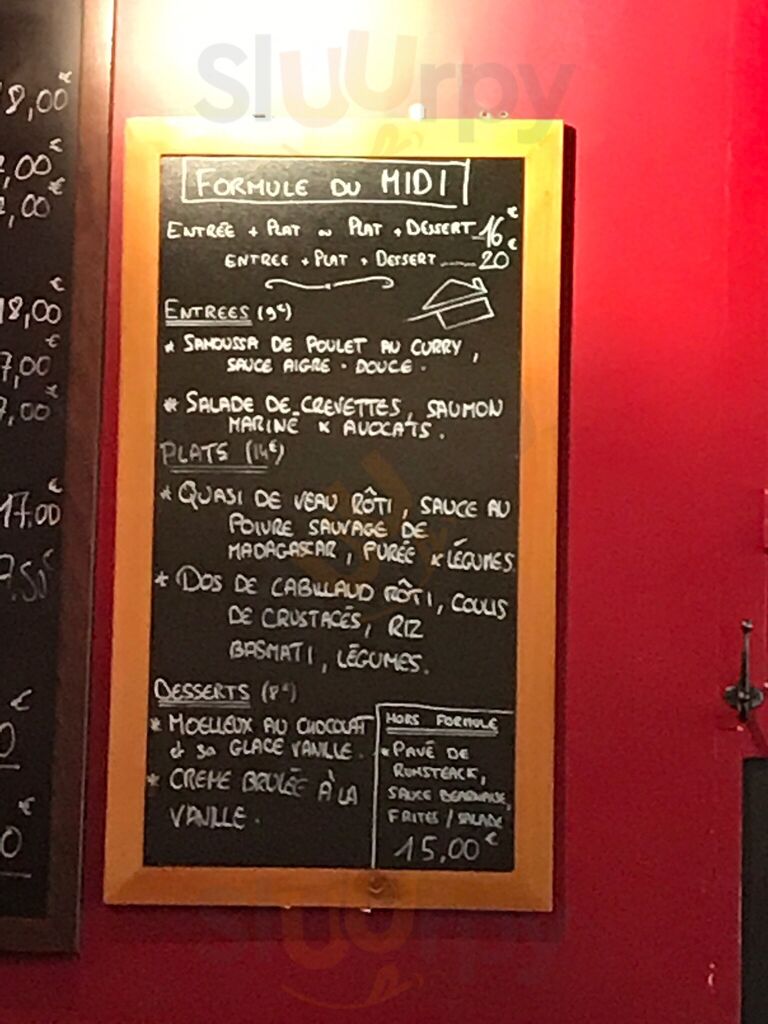 Sluurpy
8,00€
,00€
,00€
18,00€
7,00€
7,00€
17.00€
9.50€
FORMULE DU MIDI
ENTRÉE + PLAT ou PLAT + DESSERT 16€
ENTREE + PLAT + DESSERT 20€
ENTREES (9€)
* SAMOUSSA DE POULET AU CURRY,
SAUCE AIGRE-DOUCE.
* SALADE DE CREVETTES, SAUMON
MARINÉ & AVOCATS.
PLATS (14€)
* QUASI DE VEAU RÔTI, SAUCE AU
POIVRE SAUVAGE DE
MADAGASCAR, PURÉE & LÉGUMES.
* DOS DE CABILLAUD RÔTI, COULIS
DE CRUSTACÉS, RIZ
BASMATI, LÉGUMES.
DESSERTS (8€)
* MOELLEUX AU CHOCOLAT
et sa GLACE VANILLE.
* CREME BRULÉE À LA
VANILLE.
HORS FORMULE
* PAVÉ DE
RUMSTEACK,
SAUCE BEARNAISE,
FRITES / SALADE
15,00€
Sluurpy